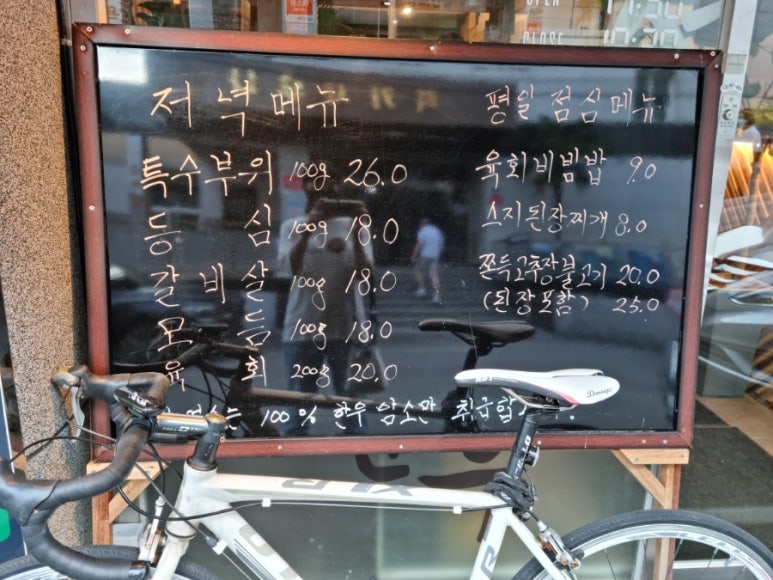 저녁메뉴
특수부위 100g 26.0
등 심 100g 18.0
갈비살 100g 18.0
모 듬 100g 18.0
육 회 200g 20.0
평일 점심메뉴
육회비빔밥 9.0
스지된장찌개 8.0
쫀득고추장불고기 20.0
(된장포함) 25.0
100% 한우 암소만
Dimage